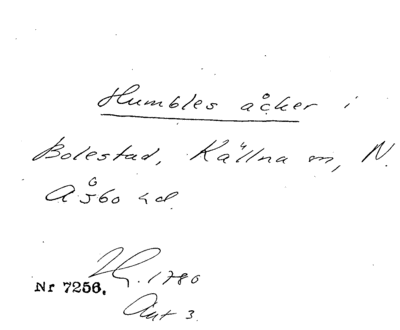 Humbles åcker i
Bolestad, Källna sn, N.
Åsbo hd.
1780
Nr 7256.
Akt 3.